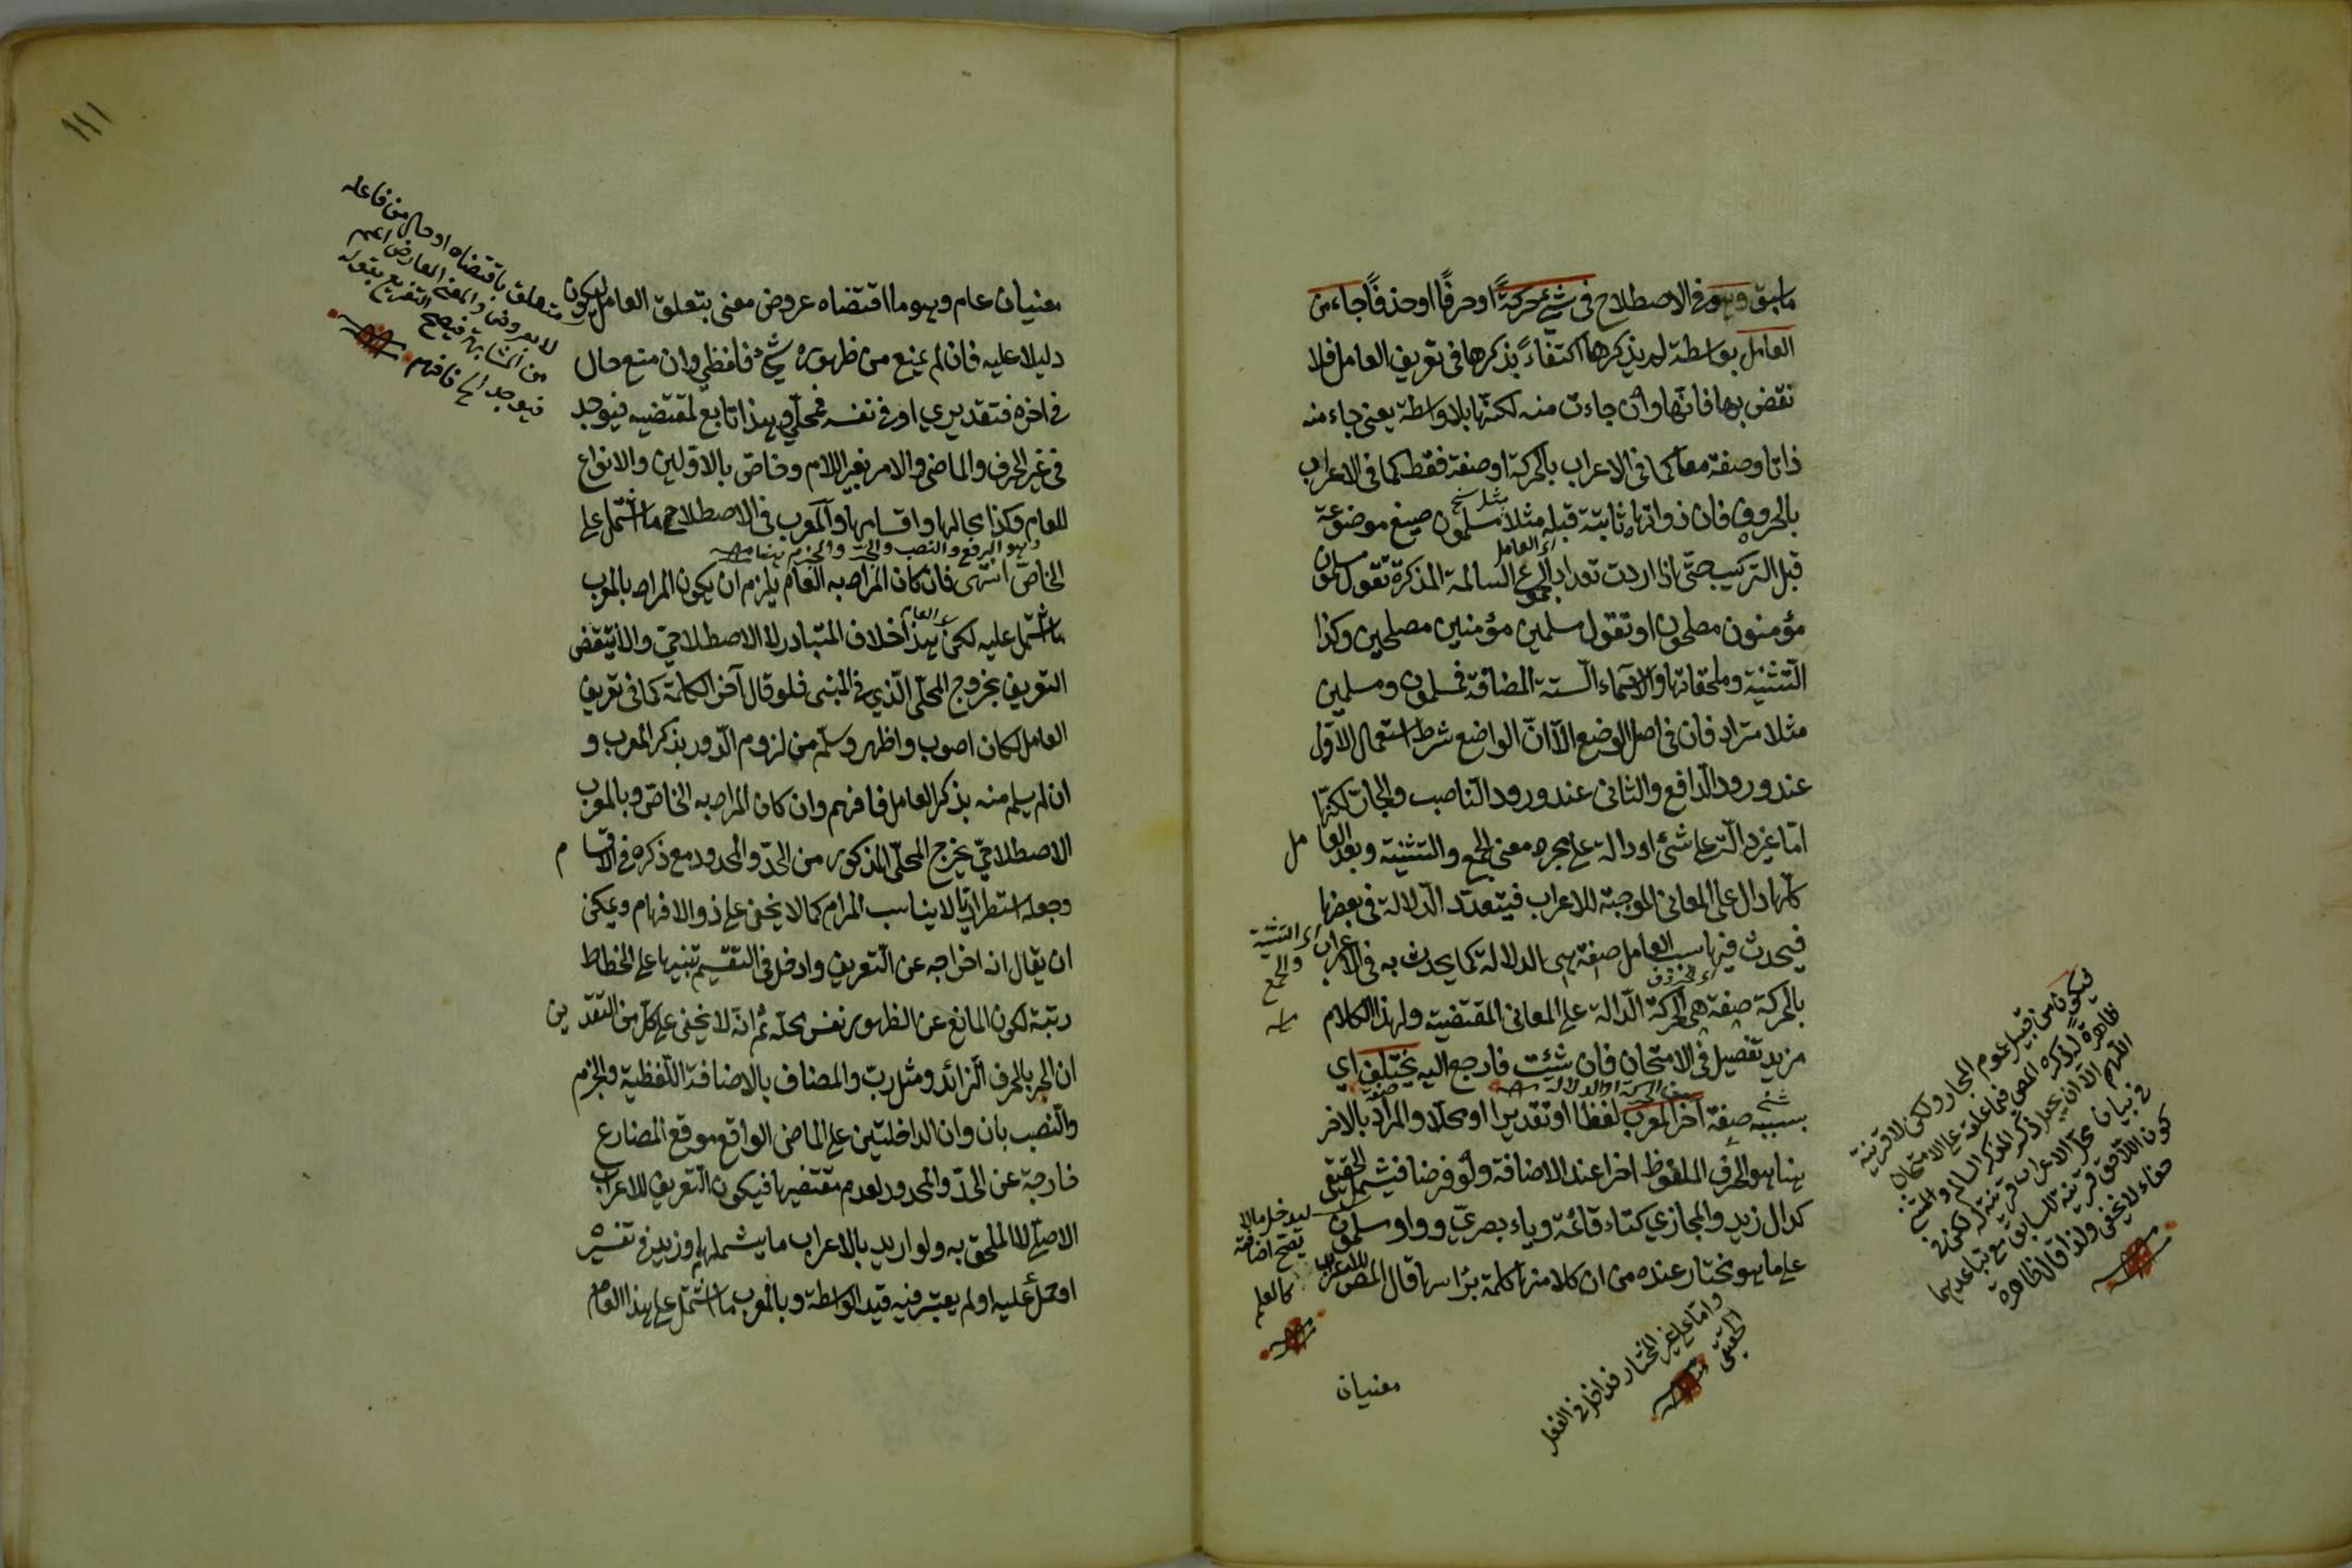 ما سبق وهو في الاصطلاح في شيء حركةً او حرفًا او حذفًا جاء من
العامل بواسطة لم يذكرها اكتفاءً بذكرها في تعريف العامل فلا
نقض بها فانها وان جاءت منه لكنها بلا واسطة يعني جاء منه
ذاتا وصفة معا كما في الاعراب بالحركة او صفة فقط كما في الاعراب
بالحروف فان ذواتها ثابتة قبله مثلا مسلمون صيغ موضوعة
اي العامل
قبل التركيب حتى اذا اردت تعداد الجموع السالمة المذكرة تقول مسلمون
مؤمنون مصلحون او تقول مسلمين مؤمنين مصلحين وكذا
التثنية وملحقاتها والاسماء الستة المضافة فمسلمون ومسلمين
مثلا مترادفان في اصل الوضع الا ان الواضع شرط استعمال الاول
عند ورود الرافع والثاني عند ورود الناصب والجار لكنها
اما غير دالة على شيء او دالة على مجرد معنى الجمع والتثنية وبعد العامل
كلها دال على المعاني الموجبة للاعراب فيتعدد الدلالة في بعضها
اي التثنية والجمع
فيحدث فيها بسبب العامل صفة هي الدلالة كما يحدث به في الاعراب
بالحركة صفة هي الحركة الدالة على المعاني المقتضية ولهذا الكلام
مزيد تفصيل في الامتحان فان شئت فارجع اليه يختلف اي
بسببه صفة آخر المعرب لفظا او تقديرا او محلا والمراد بالآخر
هنا هو الحرف الملفوظ اخرا عند الاضافة ولو فرضا فيشمل الحقيقي
كدال زيد والمجازي كتاء قائمة وياء بصري وواو مسلمون
على ما هو مختار عنده من ان كلا منها كلمة برأسها قال المص للاعراب
ليدخل مالا
يصح اضافته
كالعلم
واما على غير المختار فداخل في
الحقيقي منه
معنيان
فيكون من قبيل عموم المجاز ولكن لا قرينة
ظاهرة
١١١
معنيان عام وهو ما اقتضاه عروض معنى بتعلق العامل ليكون
دليلا عليه فان لم يمنع من ظهوره شيء فلفظي وان منع حال
في اخره فتقديري او في نفسه فمحلي وهذا تابع لمقتضيه فيوجد
في غير الحرف والماضي والامر بغير اللام وخاص بالاولين والانواع
للعام وكذا محالها واقسامها والمعرب في الاصطلاح ما اشتمل على
وهو الرفع والنصب والجر والجزم
الخاص انتهى فان كان المراد به العام يلزم ان يكون المراد بالمعرب
ما اشتمل عليه لكن هذا خلاف المتبادر لا الاصطلاحي والا ينتقض
التعريف بخروج المحلي الذي في المبنى فلو قال آخر الكلمة كما في تعريف
العامل لكان اصوب واظهر وسلم من لزوم الدور بذكر المعرب و
ان لم يسلم منه بذكر العامل فافهم وان كان المراد به الخاص وبالمعرب
الاصطلاحي يخرج المحلي المذكور من الحد والمحدود مع ذكره في الاقسام
وجعله استطراديا لا يناسب المرام كما لا يخفى على ذوالافهام ويمكن
ان يقال انه اخراجه عن التعريف وادخل في التقسيم تنبيها على انحطاط
رتبة لكون المانع عن الظهور نفس محله ثم انه لا يخفى على كل من التقديرين
ان الجر بالحرف الزائد ومثل رب والمضاف بالاضافة اللفظية والجزم
والنصب بان وان الداخلتين على الماضي الواقع موقع المضارع
خارجة عن الحد والمحدود لعدم مقتضيها فيكون التعريف للاعراب
الاصلي لا الملحق به ولو اريد بالاعراب ما يشملها وزيد في تفسيره
او حمل عليه او لم يعتبر فيه قيد الواسطة وبالمعرب ما اشتمل على هذا العام
متعلق باقتضاه او حال من فاعله